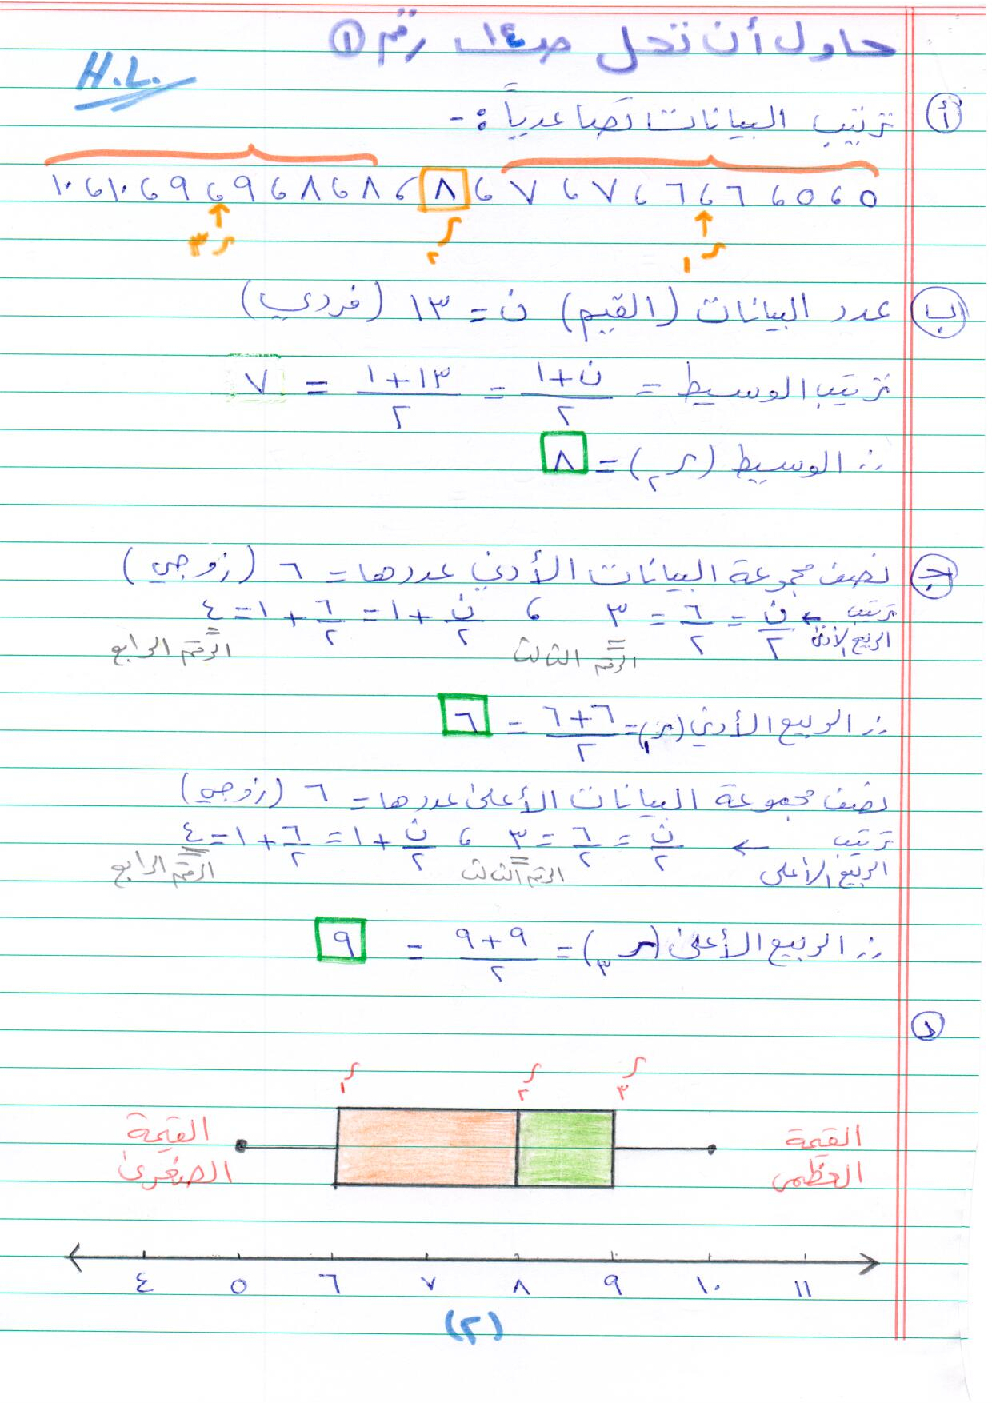 حاول أن تحل ص١٤ رقم ١
H.L.
أ ترتيب البيانات تصاعدياً :-
٥ ، ٥ ، ٦ ، ٦ ، ٧ ، ٧ ، ٨ ، ٨ ، ٨ ، ٩ ، ٩ ، ١٠ ، ١٠
ر١ ر٢ ر٣
ب عدد البيانات (القيم) ن = ١٣ (فردي)
ترتيب الوسيط = (ن+١)/٢ = (١٣+١)/٢ = ٧
∴ الوسيط (ر٢) = ٨
ج نصف مجموعة البيانات الأدنى عددها = ٦ (زوجي)
ترتيب الربيع الأدنى ← ن/٢ = ٦/٢ = ٣ ، ن/٢ + ١ = ٦/٢ + ١ = ٤
الرقم الثالث الرقم الرابع
∴ الربيع الأدنى (ر١) = (٦+٦)/٢ = ٦
نصف مجموعة البيانات الأعلى عددها = ٦ (زوجي)
ترتيب الربيع الأعلى ← ن/٢ = ٦/٢ = ٣ ، ن/٢ + ١ = ٦/٢ + ١ = ٤
الرقم الثالث الرقم الرابع
∴ الربيع الأعلى (ر٣) = (٩+٩)/٢ = ٩
د
ر١ ر٢ ر٣
القيمة الصغرى
القيمة العظمى
٤ ٥ ٦ ٧ ٨ ٩ ١٠ ١١
(٢)